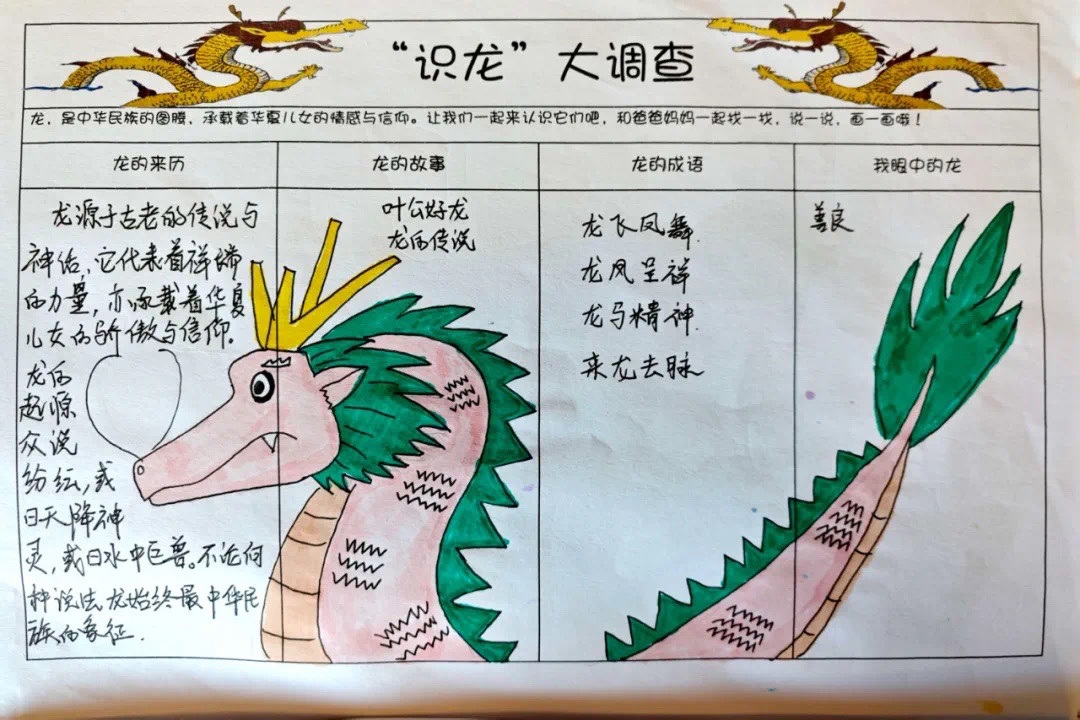 “识龙”大调查
龙，是中华民族的图腾，承载着华夏儿女的情感与信仰。让我们一起来认识它们吧，和爸爸妈妈一起找一找，说一说，画一画哦！
龙的来历
龙源于古老的传说与
神话，它代表着祥瑞
的力量，亦承载着华夏
儿女的骄傲与信仰.
龙的
起源
众说
纷纭，或
曰天降神
灵，或曰水中巨兽。不论何
种说法龙始终是中华民
族的象征.
龙的故事
叶公好龙
龙的传说
龙的成语
龙飞凤舞.
龙凤呈祥
龙马精神.
来龙去脉
我眼中的龙
善良